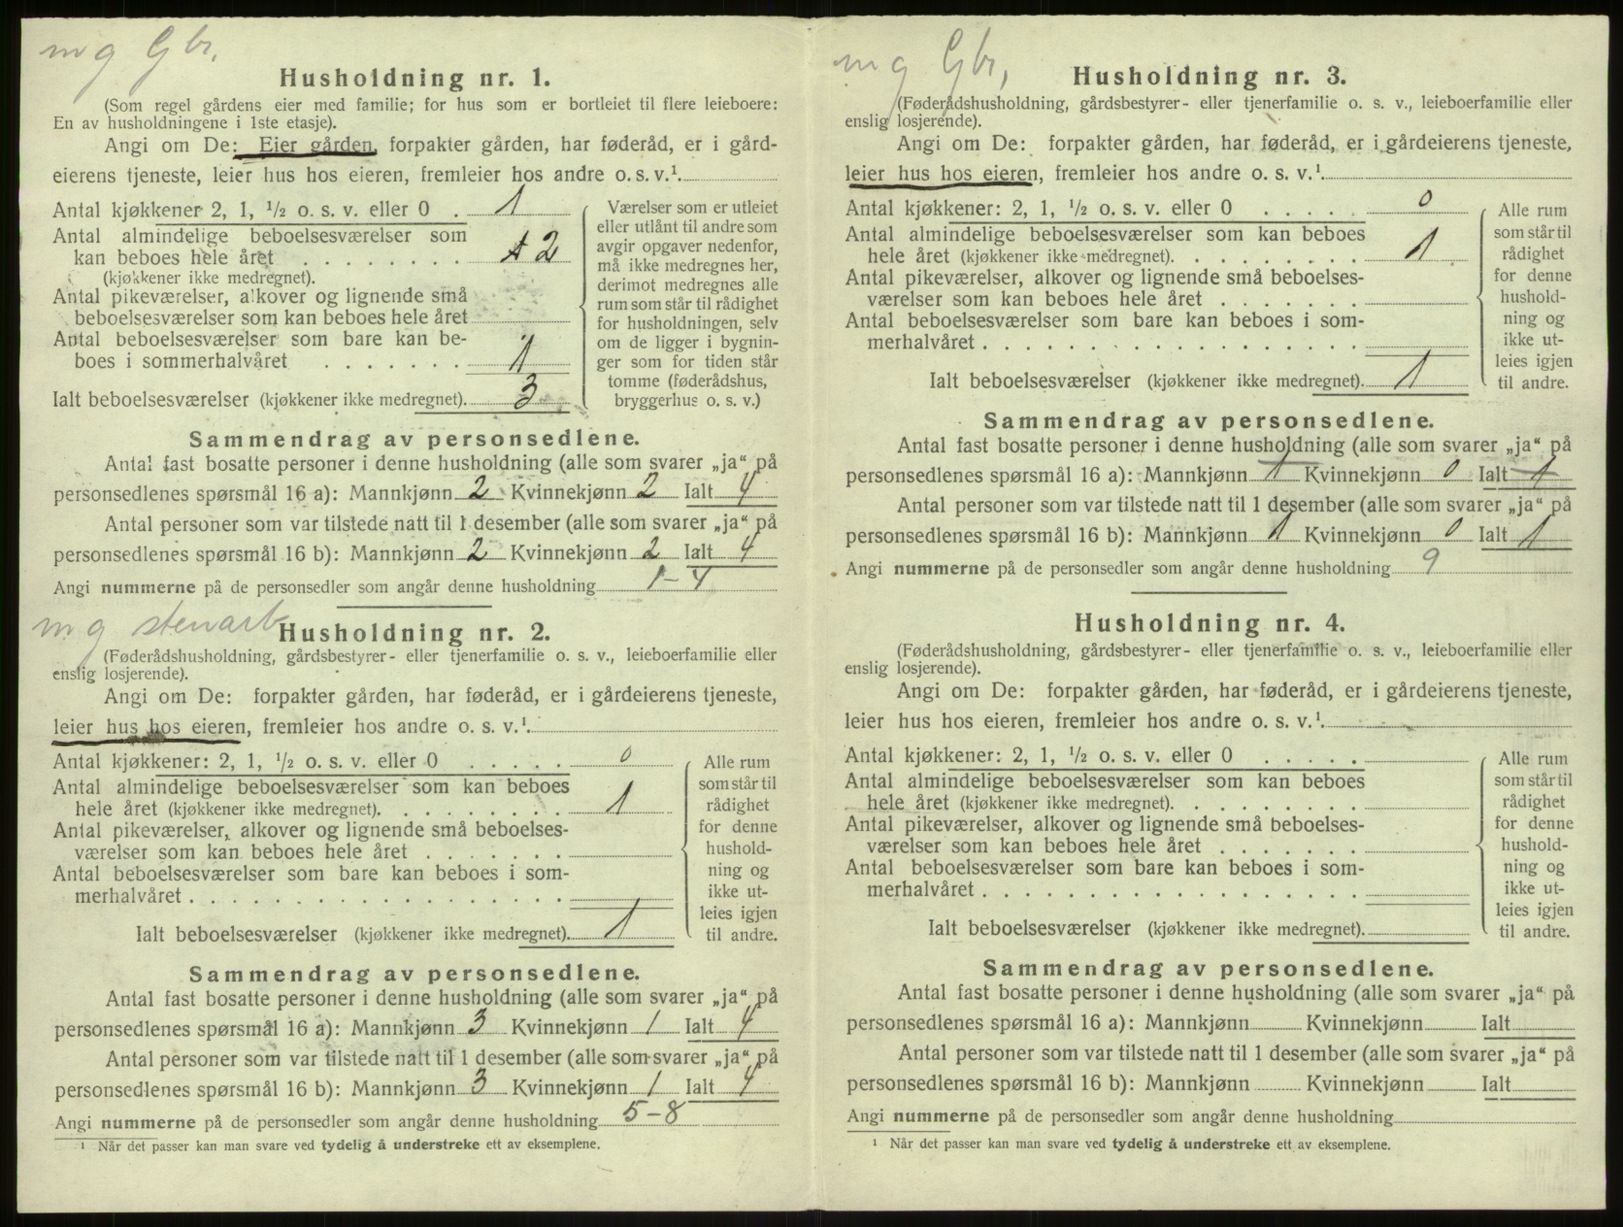 m g Gbr.
Husholdning nr. 1.
(Som regel gårdens eier med familie; for hus som er bortleiet til flere leieboere:
En av husholdningene i 1ste etasje).
Angi om De: Eier gården, forpakter gården, har føderåd, er i gård-
eierens tjeneste, leier hus hos eieren, fremleier hos andre o. s. v.¹
Antal kjøkkener 2, 1, ½ o. s. v. eller 0 . 1
Antal almindelige beboelsesværelser som
kan beboes hele året . . . . . . . . 2
(kjøkkener ikke medregnet).
Antal pikeværelser, alkover og lignende små
beboelsesværelser som kan beboes hele året
Antal beboelsesværelser som bare kan be-
boes i sommerhalvåret . . . . . . . 1
Ialt beboelsesværelser (kjøkkener ikke medregnet). 3
Værelser som er utleiet
eller utlånt til andre som
avgir opgaver nedenfor,
må ikke medregnes her,
derimot medregnes alle
rum som står til rådighet
for husholdningen, selv
om de ligger i bygnin-
ger som for tiden står
tomme (føderådshus,
bryggerhus o. s. v.)
Sammendrag av personsedlene.
Antal fast bosatte personer i denne husholdning (alle som svarer „ja“ på
personsedlenes spørsmål 16 a): Mannkjønn 2 Kvinnekjønn 2 Ialt 4
Antal personer som var tilstede natt til 1 desember (alle som svarer „ja“ på
personsedlenes spørsmål 16 b): Mannkjønn 2 Kvinnekjønn 2 Ialt 4
Angi nummerne på de personsedler som angår denne husholdning 1-4
m g stenarb
Husholdning nr. 2.
(Føderådshusholdning, gårdsbestyrer- eller tjenerfamilie o. s. v., leieboerfamilie eller
enslig losjerende).
Angi om De: forpakter gården, har føderåd, er i gårdeierens tjeneste,
leier hus hos eieren, fremleier hos andre o. s. v.¹
Antal kjøkkener: 2, 1, ½ o. s. v. eller 0 . . . . . 0
Antal almindelige beboelsesværelser som kan beboes
hele året (kjøkkener ikke medregnet). . . . . . . . . 1
Antal pikeværelser, alkover og lignende små beboelses-
værelser som kan beboes hele året . . . . . . .
Antal beboelsesværelser som bare kan beboes i som-
merhalvåret . . . . . . . . . . . . . . . . . .
Ialt beboelsesværelser (kjøkkener ikke medregnet). 1
Alle rum
som står til
rådighet
for denne
hushold-
ning og
ikke ut-
leies igjen
til andre.
Sammendrag av personsedlene.
Antal fast bosatte personer i denne husholdning (alle som svarer „ja“ på
personsedlenes spørsmål 16 a): Mannkjønn 3 Kvinnekjønn 1 Ialt 4
Antal personer som var tilstede natt til 1 desember (alle som svarer „ja“ på
personsedlenes spørsmål 16 b): Mannkjønn 3 Kvinnekjønn 1 Ialt 4
Angi nummerne på de personsedler som angår denne husholdning 5-8
¹ Når det passer kan man svare ved tydelig å understreke ett av eksemplene.
m g Gbr,
Husholdning nr. 3.
(Føderådshusholdning, gårdsbestyrer- eller tjenerfamilie o. s. v., leieboerfamilie eller
enslig losjerende).
Angi om De: forpakter gården, har føderåd, er i gårdeierens tjeneste,
leier hus hos eieren, fremleier hos andre o. s. v.¹
Antal kjøkkener: 2, 1, ½ o. s. v. eller 0 . . . . . 0
Antal almindelige beboelsesværelser som kan beboes
hele året (kjøkkener ikke medregnet). . . . . . . . . 1
Antal pikeværelser, alkover og lignende små beboelses-
værelser som kan beboes hele året . . . . . . .
Antal beboelsesværelser som bare kan beboes i som-
merhalvåret . . . . . . . . . . . . . . . . . .
Ialt beboelsesværelser (kjøkkener ikke medregnet). 1
Alle rum
som står til
rådighet
for denne
hushold-
ning og
ikke ut-
leies igjen
til andre.
Sammendrag av personsedlene.
Antal fast bosatte personer i denne husholdning (alle som svarer „ja“ på
personsedlenes spørsmål 16 a): Mannkjønn 1 Kvinnekjønn 0 Ialt 1
Antal personer som var tilstede natt til 1 desember (alle som svarer „ja“ på
personsedlenes spørsmål 16 b): Mannkjønn 1 Kvinnekjønn 0 Ialt 1
Angi nummerne på de personsedler som angår denne husholdning 9
Husholdning nr. 4.
(Føderådshusholdning, gårdsbestyrer- eller tjenerfamilie o. s. v., leieboerfamilie eller
enslig losjerende).
Angi om De: forpakter gården, har føderåd, er i gårdeierens tjeneste,
leier hus hos eieren, fremleier hos andre o. s. v.¹
Antal kjøkkener: 2, 1, ½ o. s. v. eller 0 . . . . .
Antal almindelige beboelsesværelser som kan beboes
hele året (kjøkkener ikke medregnet). . . . . . . . .
Antal pikeværelser, alkover og lignende små beboelses-
værelser som kan beboes hele året . . . . . . .
Antal beboelsesværelser som bare kan beboes i som-
merhalvåret . . . . . . . . . . . . . . . . . .
Ialt beboelsesværelser (kjøkkener ikke medregnet).
Alle rum
som står til
rådighet
for denne
hushold-
ning og
ikke ut-
leies igjen
til andre.
Sammendrag av personsedlene.
Antal fast bosatte personer i denne husholdning (alle som svarer „ja“ på
personsedlenes spørsmål 16 a): Mannkjønn Kvinnekjønn Ialt
Antal personer som var tilstede natt til 1 desember (alle som svarer „ja“ på
personsedlenes spørsmål 16 b): Mannkjønn Kvinnekjønn Ialt
Angi nummerne på de personsedler som angår denne husholdning
¹ Når det passer kan man svare ved tydelig å understreke ett av eksemplene.